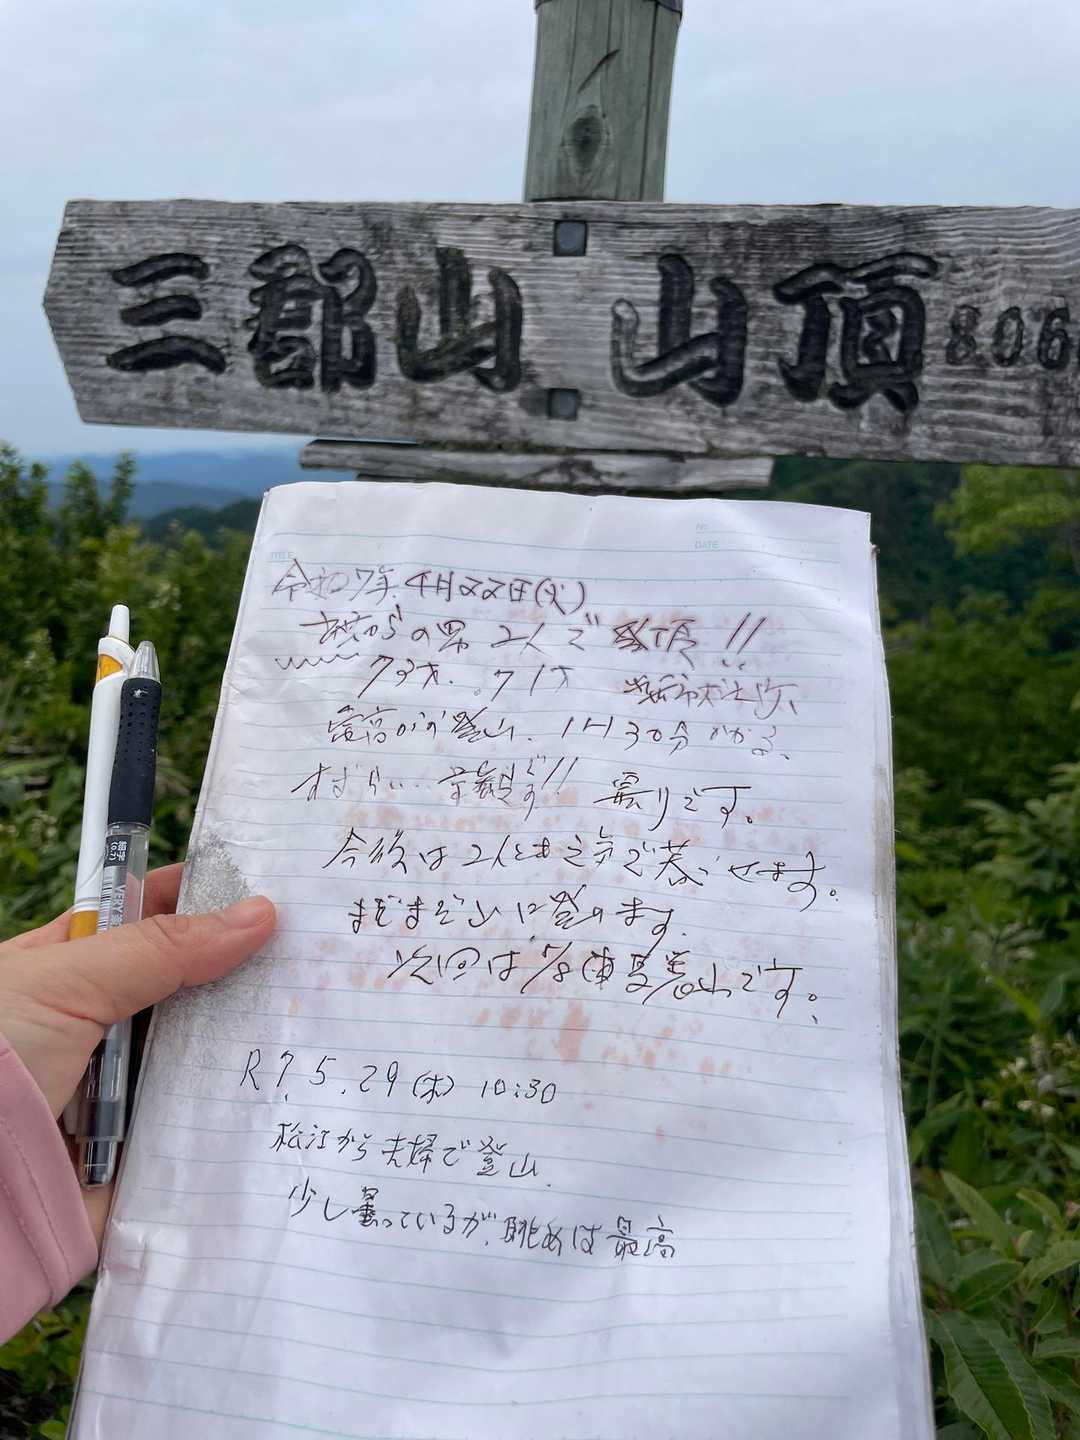 三郡山 山頂 806
No.
TITLE
DATE
令和7年 4月22日(火)
からの男 2人で 登頂!!
73才. 71才
最高の登山. 1H30分かかる、
すばらしい 景観です!! 曇りです。
今後は2人とも元気で暮らせます。
まだまだ山に登ります.
次回は 7/8 山です。
R7.5.29(木) 10:30
松江から夫婦で登山.
少し曇っているが、眺めは最高
細字
(0.7)
VERY